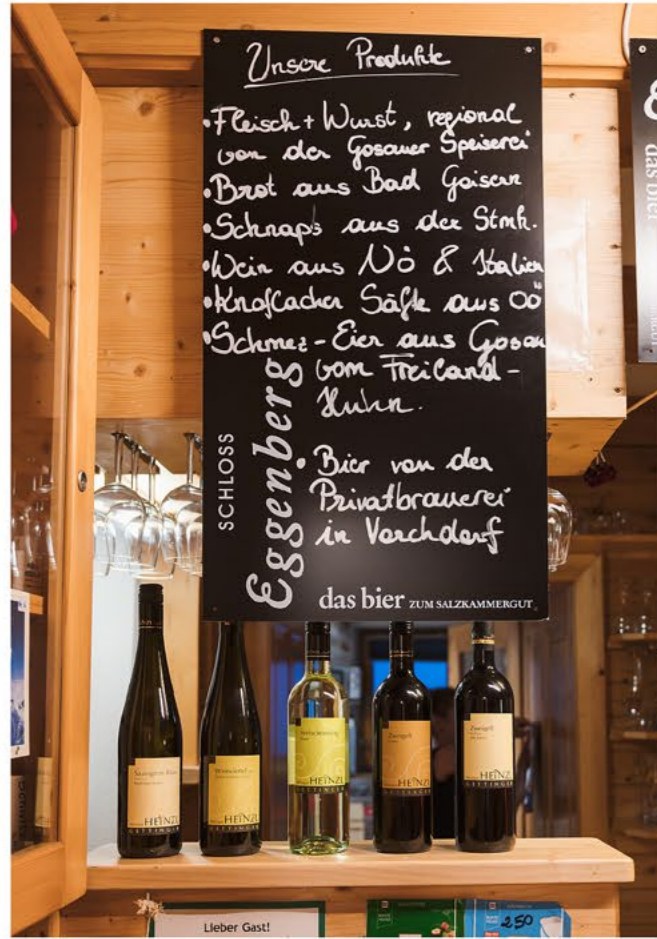 Unsere Produkte
• Fleisch + Wurst, regional
von der Gosauer Speiserei
• Brot aus Bad Goisern
• Schnaps aus der Stmk.
• Wein aus NÖ & Italien
• Knoflacher Säfte aus OÖ
• Schmez-Eier aus Gosau
vom Freiland-
Huhn.
• Bier von der
Privatbrauerei
in Vorchdorf
SCHLOSS
Eggenberg
das bier ZUM SALZKAMMERGUT
das bier
Sauvignon Blanc
HEINZL
GETTINGER
HEINZL
GETTINGER
HEINZL
GETTINGER
Zweigelt
HEINZL
GETTINGER
Zweigelt
HEINZL
GETTINGER
Lieber Gast!
250